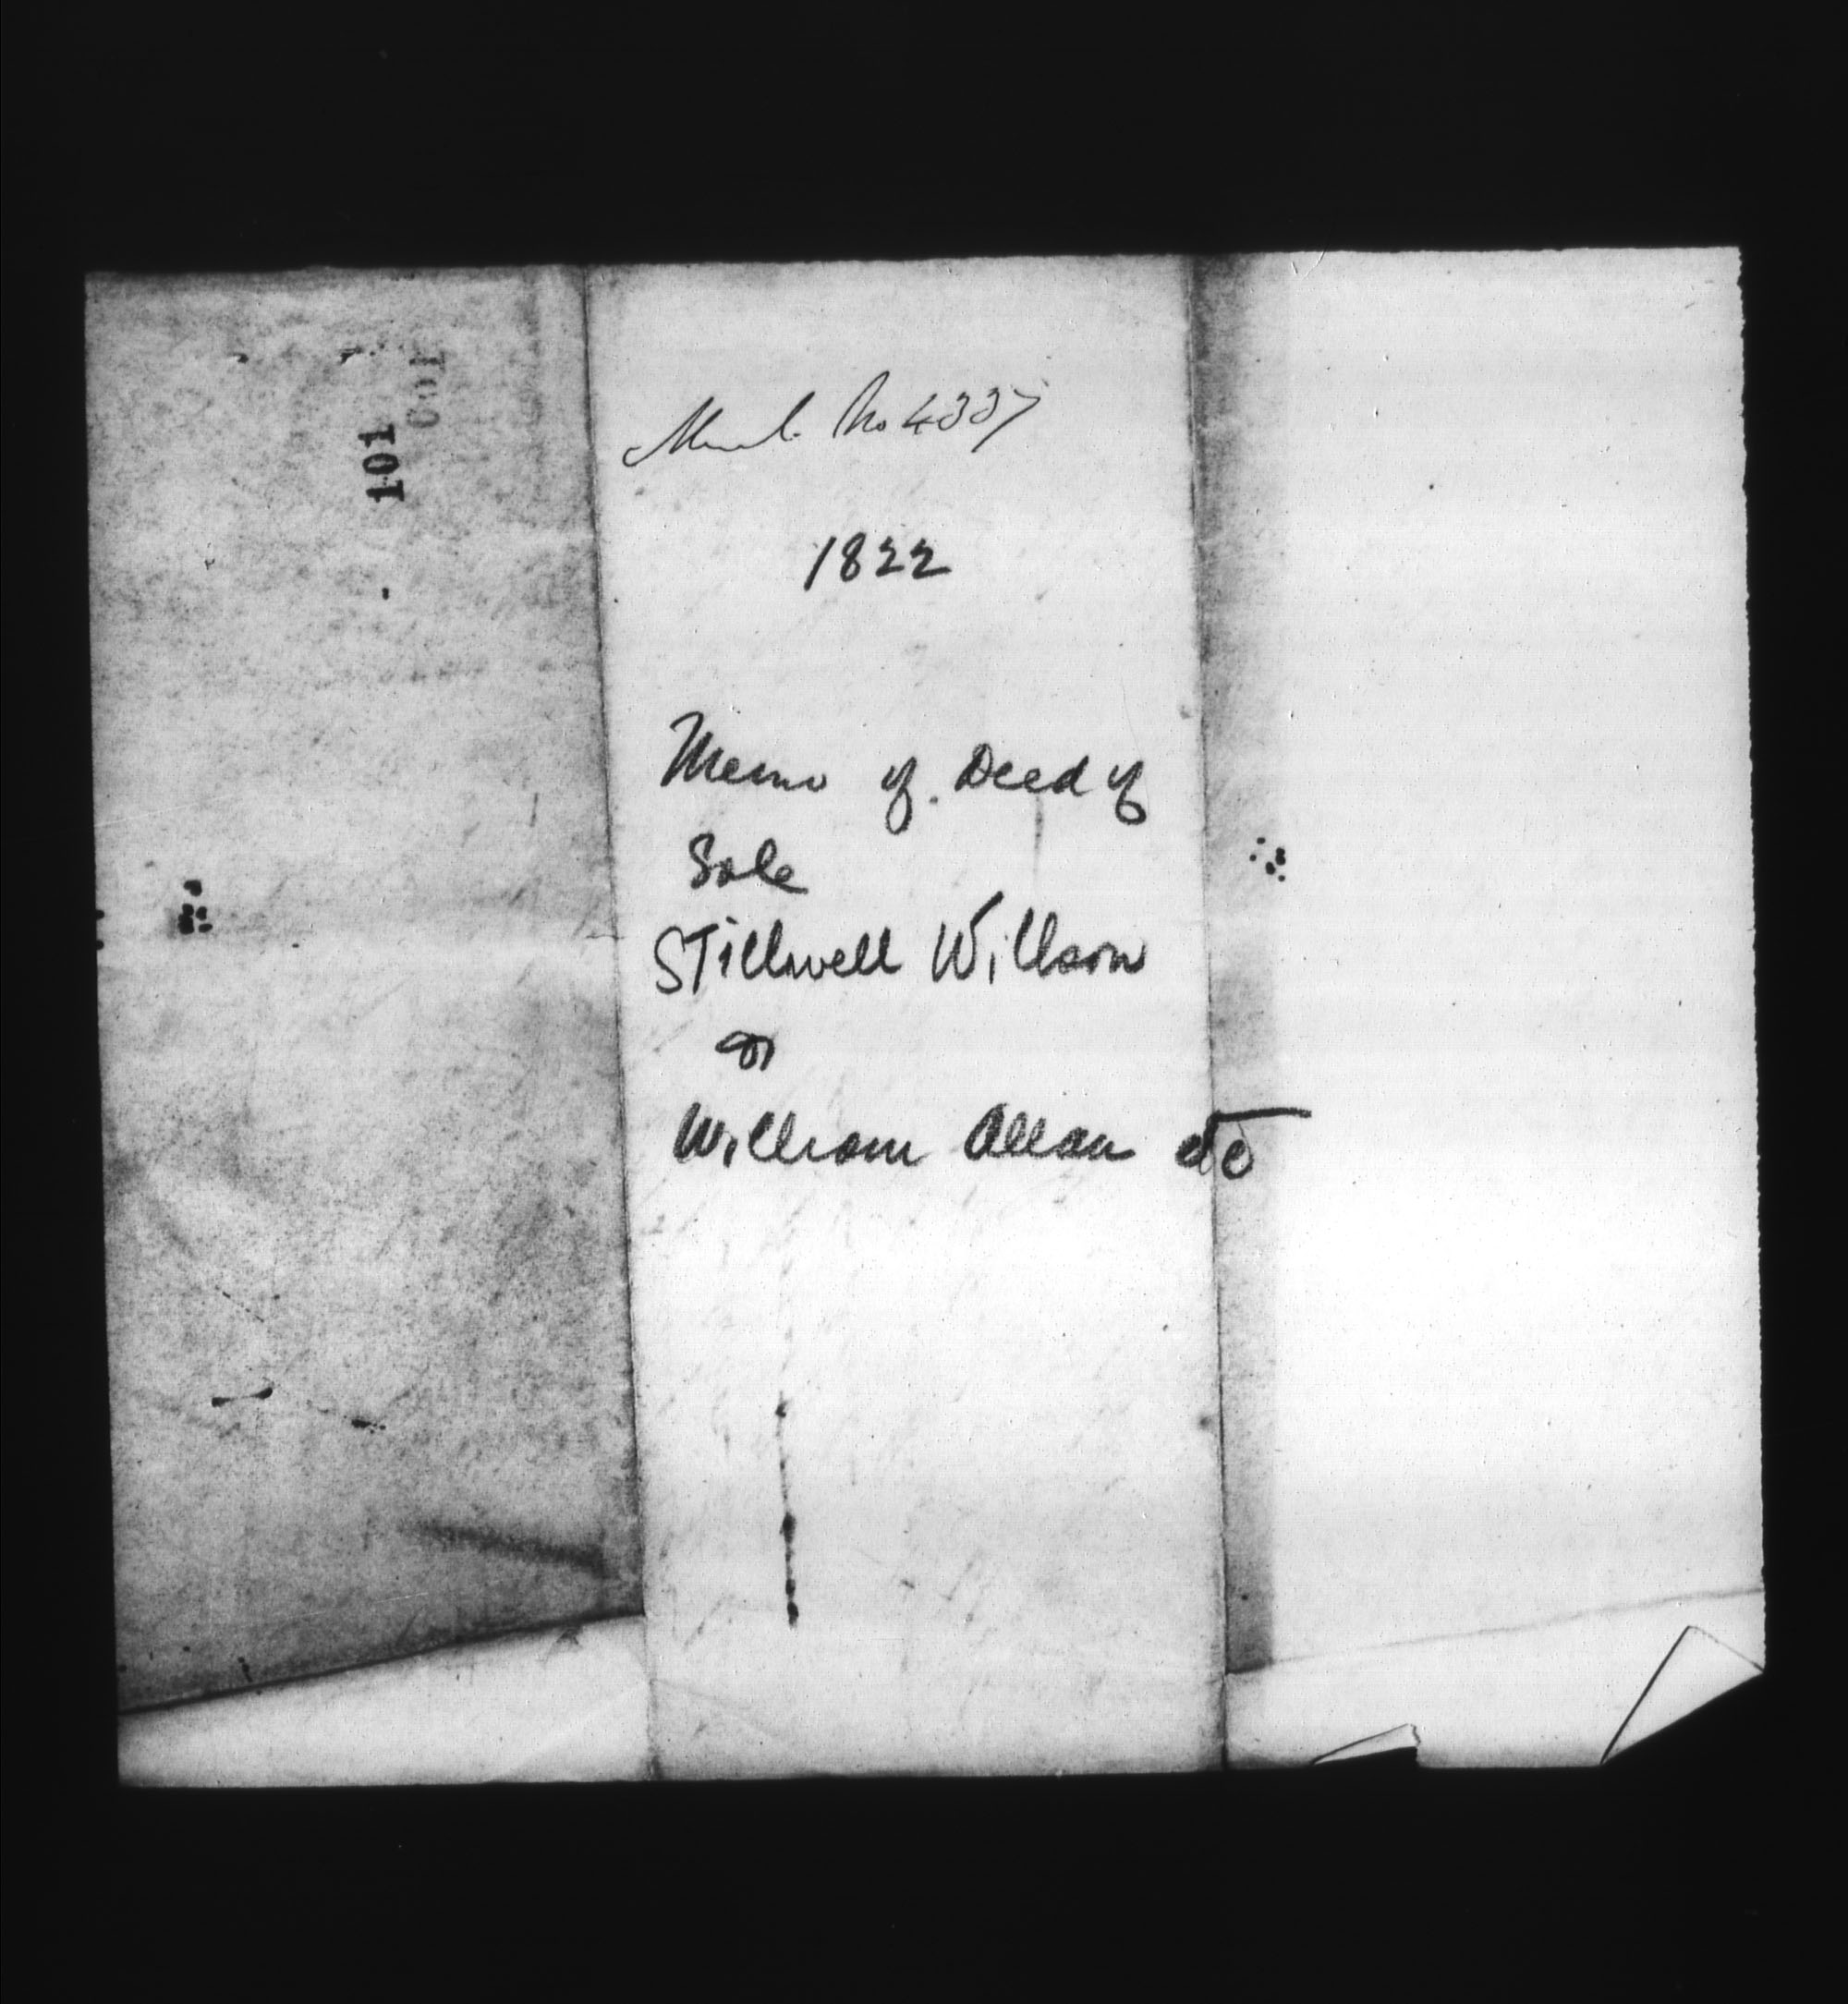 101
No 4337
1822
Memo of Deed of
Sale
Stillwell Willson
to
William Allan etc